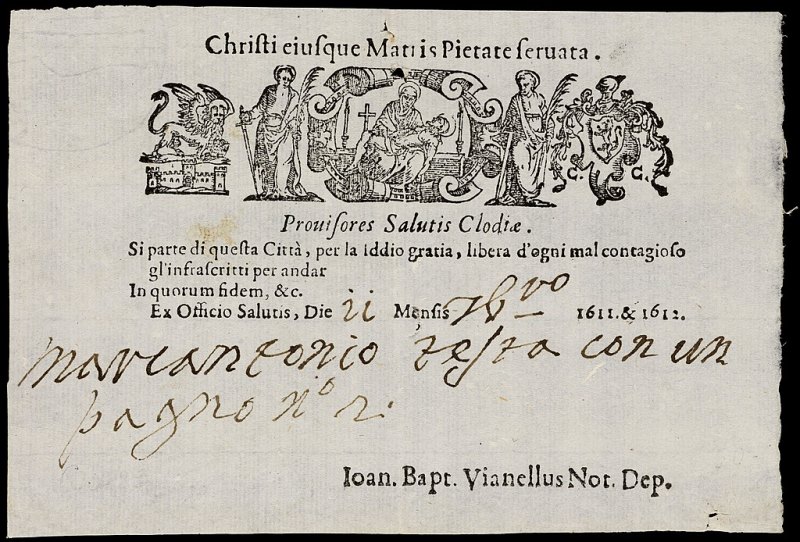 Christi eiusque Matris Pietate seruata.
C. C.
Prouisores Salutis Clodiæ.
Si parte di questa Città, per la Iddio gratia, libera d'ogni mal contagioso
gl'infrascritti per andar
In quorum fidem, &c.
Ex Officio Salutis, Die ii Mensis 7bro 1611. & 1612.
marcantonio testa con un
pagno nº 2.
Ioan. Bapt. Vianellus Not. Dep.